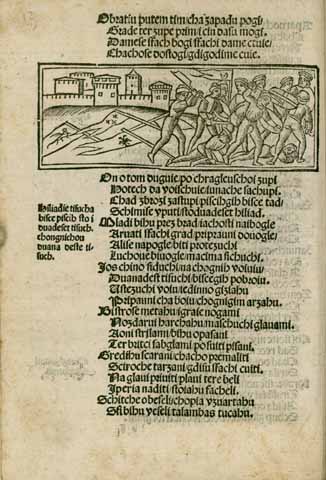 Obratiu putem timcha zapadu pogi
Stade ter zupe prim i ciu dasu mogi
Damese ssach bogi ssachi dame ctuie
Chachose dostogi gdigodime cuie.
On o tom duguie, po chragleuschoi zupi
Hotech da voischuie iunache sachupi
Chad zbrozi zastupi piscihgih bisce tad
Schimise vputi stoduadeset hiliad.
Mladi bihu prez brad iachosti naibogle
Aruati ssachi grad pripraunі douogle
Alise napogle biti protezuchi
Luchoue biuogle macima sichuchi.
Jos chino siduchi na chognih voiuiu
Duanadest tisuchi biscegih pobroiu.
Tistezuchi voiuiedinno gizlahu
Pripaunі cha boiu chognigim arzahu.
Bistrose metahu igraise nogami
Nozdarui harchahu maschuchi glauami.
Aoni strilami bihu opasani
Ter britci sabglami posuiti pisani.
Gredihu scarani chacho premaliti
Sciroche tarzani gdisu ssachi cuiti.
Na glaui priuiti plani tere beli
Iperia naditi stoiahu sacheli.
Schitche obeseli chopia vzuartahu
Sfibihu veseli talambas tucahu.
Hiliadie tisucha
bisce piscih sto i
duadeset tisuch.
chongnichou
duana deste ti-
such.